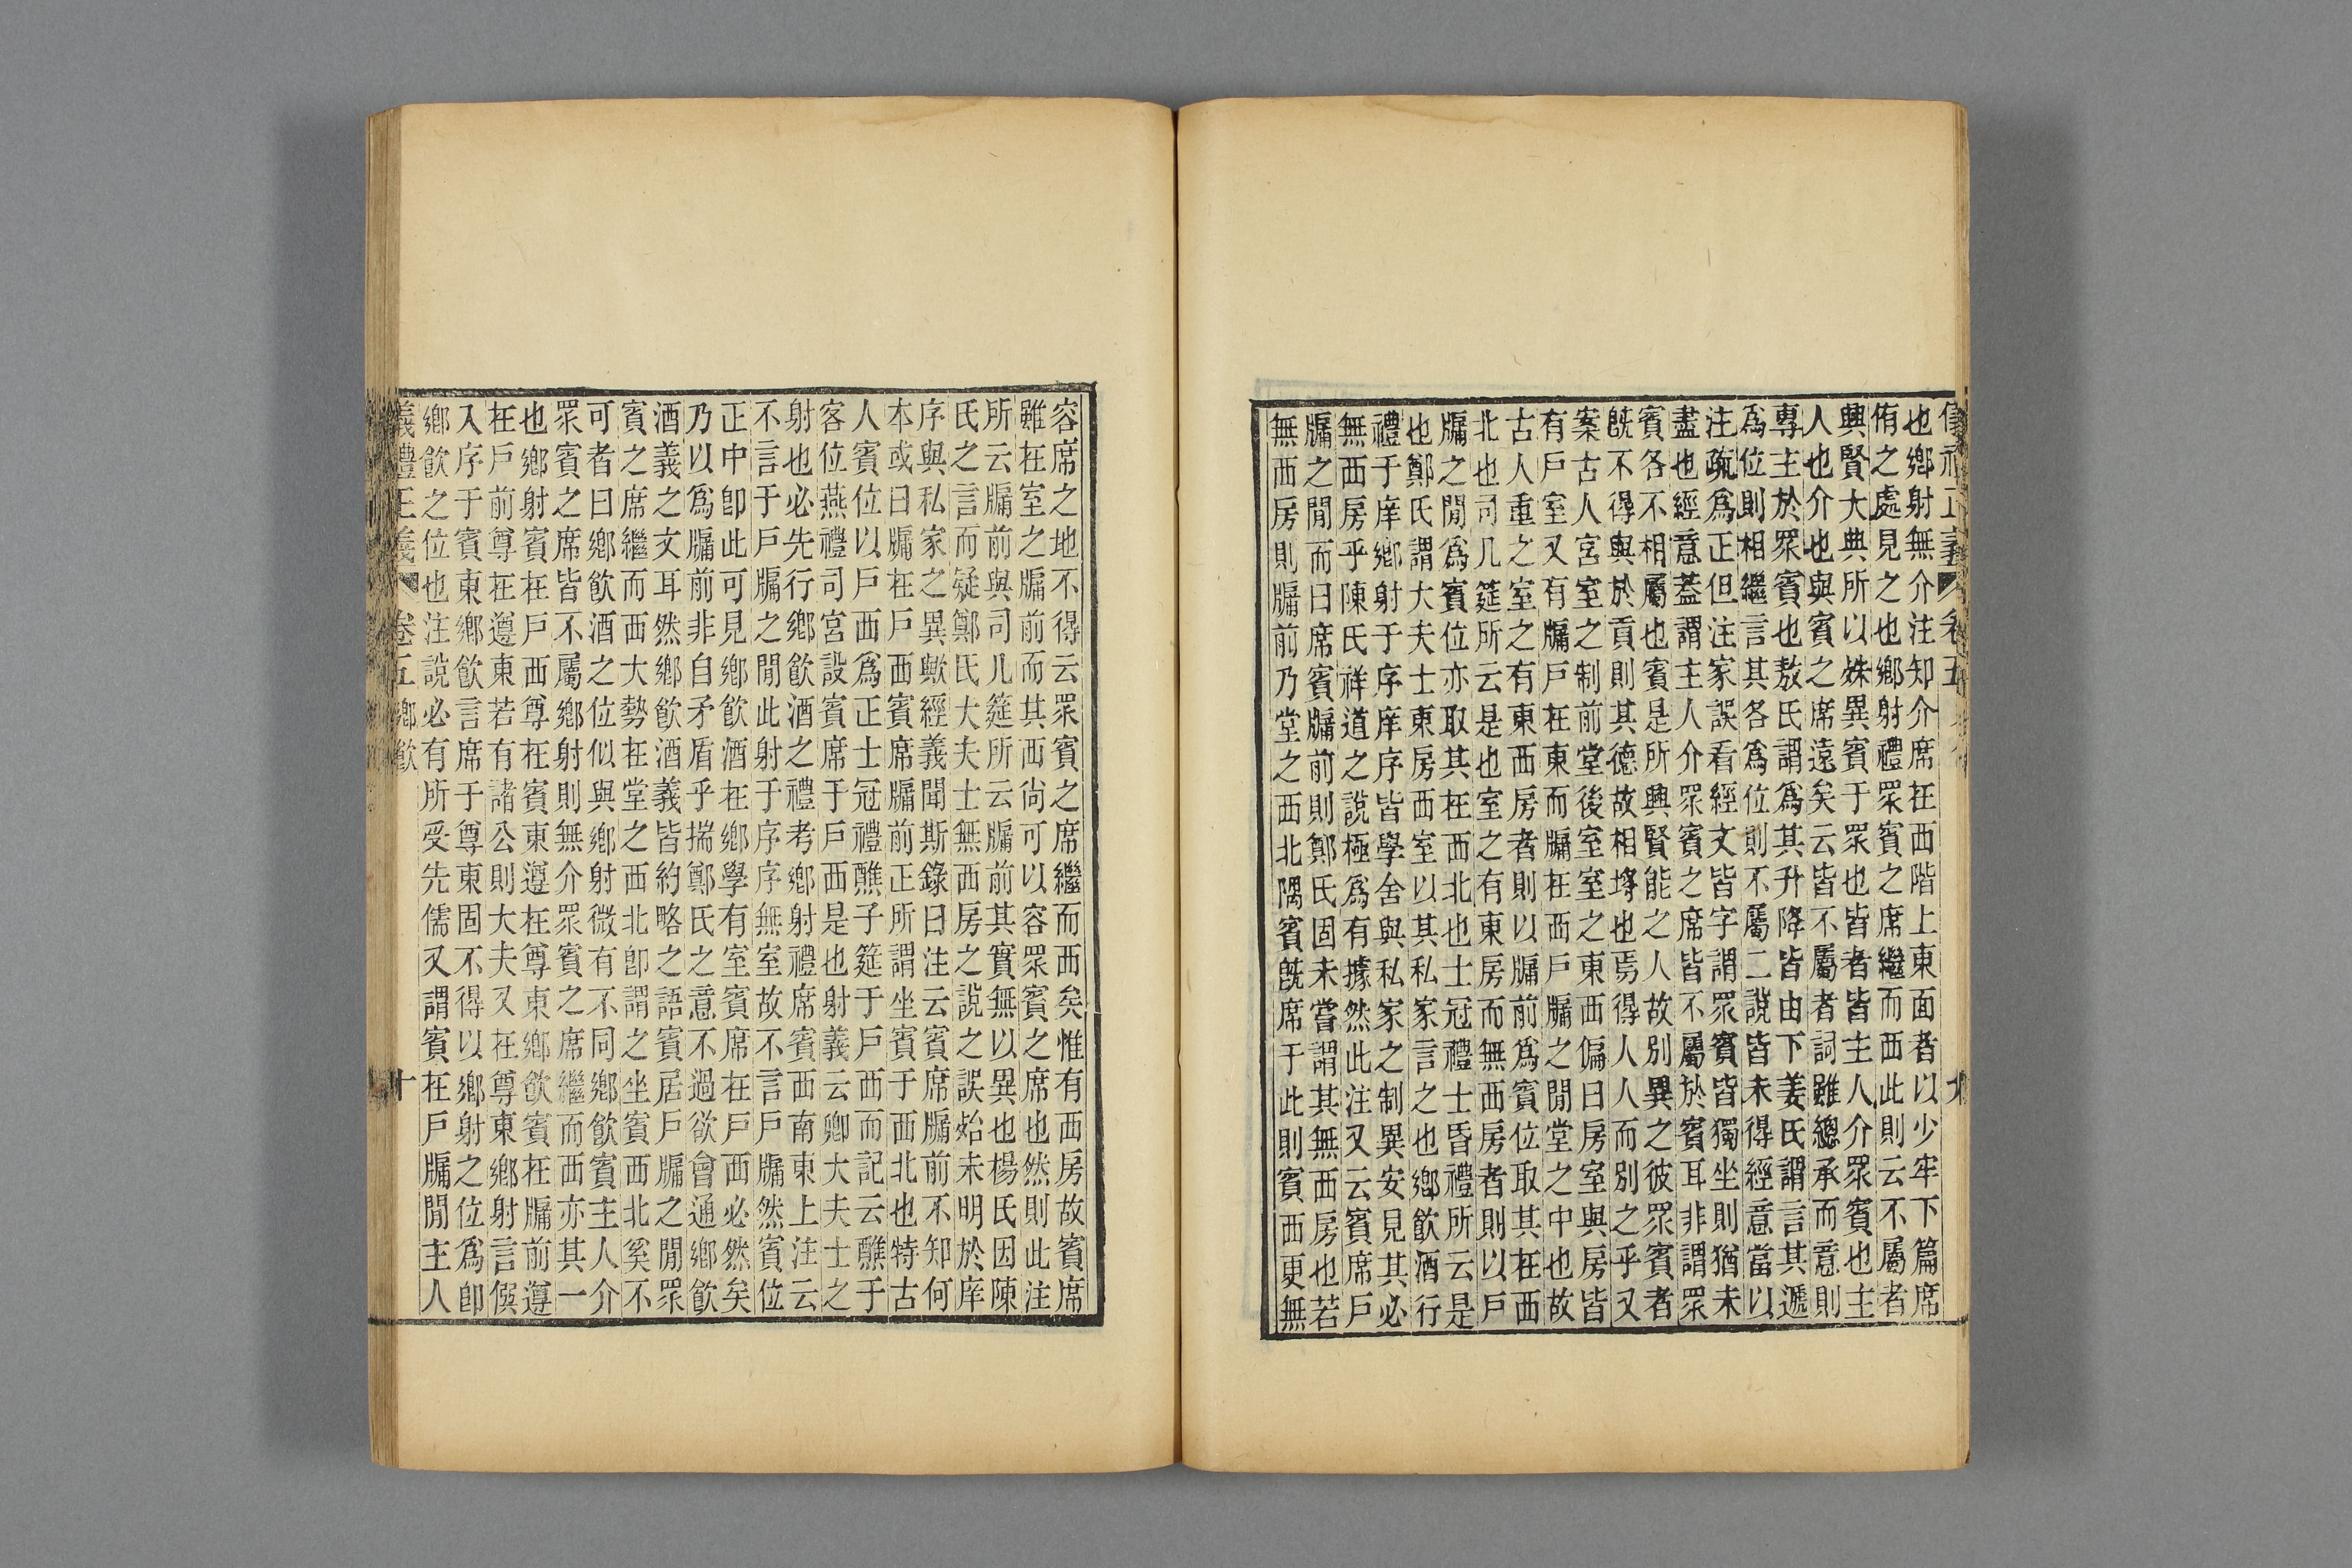 儀禮正義 卷五 九
也鄉射無介注知介席在西階上東面者以少牢下篇席
侑之處見之也鄉射禮眾賓之席繼而西此則云不屬者
興賢大典所以姝異賓于眾也皆者皆主人介眾賓也主
人也介也與賓之席遠矣云皆不屬者詞雖總承而意則
專主於眾賓也敖氏謂為其升降皆由下姜氏謂言其遞
為位則相繼言其各為位則不屬二說皆未得經意當以
注疏為正但注家誤看經文皆字謂眾賓皆獨坐則猶未
盡也經意蓋謂主人介眾賓之席皆不屬於賓耳非謂眾
賓各不相屬也賓是所興賢能之人故別異之彼眾賓者
旣不得與於貢則其德故相埒也焉得人人而別之乎又
案古人宮室之制前堂後室室之東西偏曰房室與房皆
有戶室又有牖戶在東而牖在西戶牖之閒堂之中也故
古人重之室之有東西房者則以牖前為賓位取其在西
北也司几筵所云是也室之有東房而無西房者則以戶
牖之閒為賓位亦取其在西北也士冠禮士昏禮所云是
也鄭氏謂大夫士東房西室以其私家言之也鄉飲酒行
禮于庠鄉射于序庠序皆學舍與私家之制異安見其必
無西房乎陳氏祥道之說極為有據然此注又云賓席戶
牖之閒而曰席賓牖前則鄭氏固未嘗謂其無西房也若
無西房則牖前乃堂之西北隅賓旣席于此則賓西更無
容席之地不得云眾賓之席繼而西矣惟有西房故賓席
雖在室之牖前而其西尙可以容眾賓之席也然則此注
所云牖前與司几筵所云牖前其實無以異也楊氏因陳
氏之言而疑鄭氏大夫士無西房之說之誤殆未明於庠
序與私家之異歟經義聞斯錄曰注云賓席牖前不知何
本或曰牖在戶西賓席牖前正所謂坐賓于西北也特古
人賓位以戶西為正士冠禮醮子筵于戶西而記云醮于
客位燕禮司宮設賓席于戶西是也射義云卿大夫士之
射也必先行鄉飲酒之禮考鄉射禮席賓西南東上注云
不言于戶牖之閒此射于序序無室故不言戶牖然賓位
正中卽此可見鄉飲酒在鄉學有室賓席在戶西必然矣
乃以為牖前非自矛盾乎揣鄭氏之意不過欲會通鄉飲
酒義之文耳然鄉飲酒義皆約略之語賓居戶牖之閒眾
賓之席繼而西大勢在堂之西北卽謂之坐賓西北奚不
可者曰鄉飲酒之位似與鄉射微有不同鄉飲賓主人介
眾賓之席皆不屬鄉射則無介眾賓之席繼而西亦其一
也鄉射賓在戶西尊在賓東遵在尊東鄉飲賓在牖前遵
在戶前尊在遵東若有諸公則大夫又在尊東鄉射言僎
入序于賓東鄉飲言席于尊東固不得以鄉射之位為卽
鄉飲之位也注說必有所受先儒又謂賓在戶牖閒主人
義禮正義 卷五 鄉飲 十